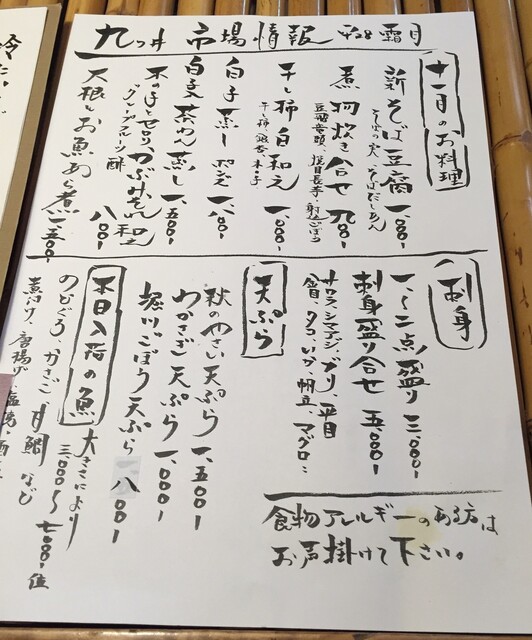 九つ井 市場情報 平28 霜月
十一月のお料理
新そば豆腐 一、〇〇〇
そばの実、そばだしあん
煮物炊き合せ 九〇〇
干し柿白和え 一、〇〇〇
干し柿、銀杏、木ノ子
白子蒸し ポン酢 一、八〇〇
白子茶わん蒸し 一、五〇〇
木の子とせり、かぶみぞれ和え
グレープフルーツ酢 八〇〇
大根とお魚あら煮 一、五〇〇
刺身
一、〜二点盛り 三、〇〇〇
刺身盛り合せ 五、〇〇〇
サワラ、シマアジ、ブリ、平目
タコ、いか、帆立、マグロ
天ぷら
秋のやさい天ぷら 一、五〇〇
わかさぎ天ぷら 一、〇〇〇
堀川ごぼう天ぷら 一、八〇〇
本日入荷の魚
大きさにより
三、〇〇〇〜七、〇〇〇位
のどぐろ、かさご、甘鯛など
煮付け、唐揚げ、塩焼
食物アレルギーのある方は
お声掛けて下さい。